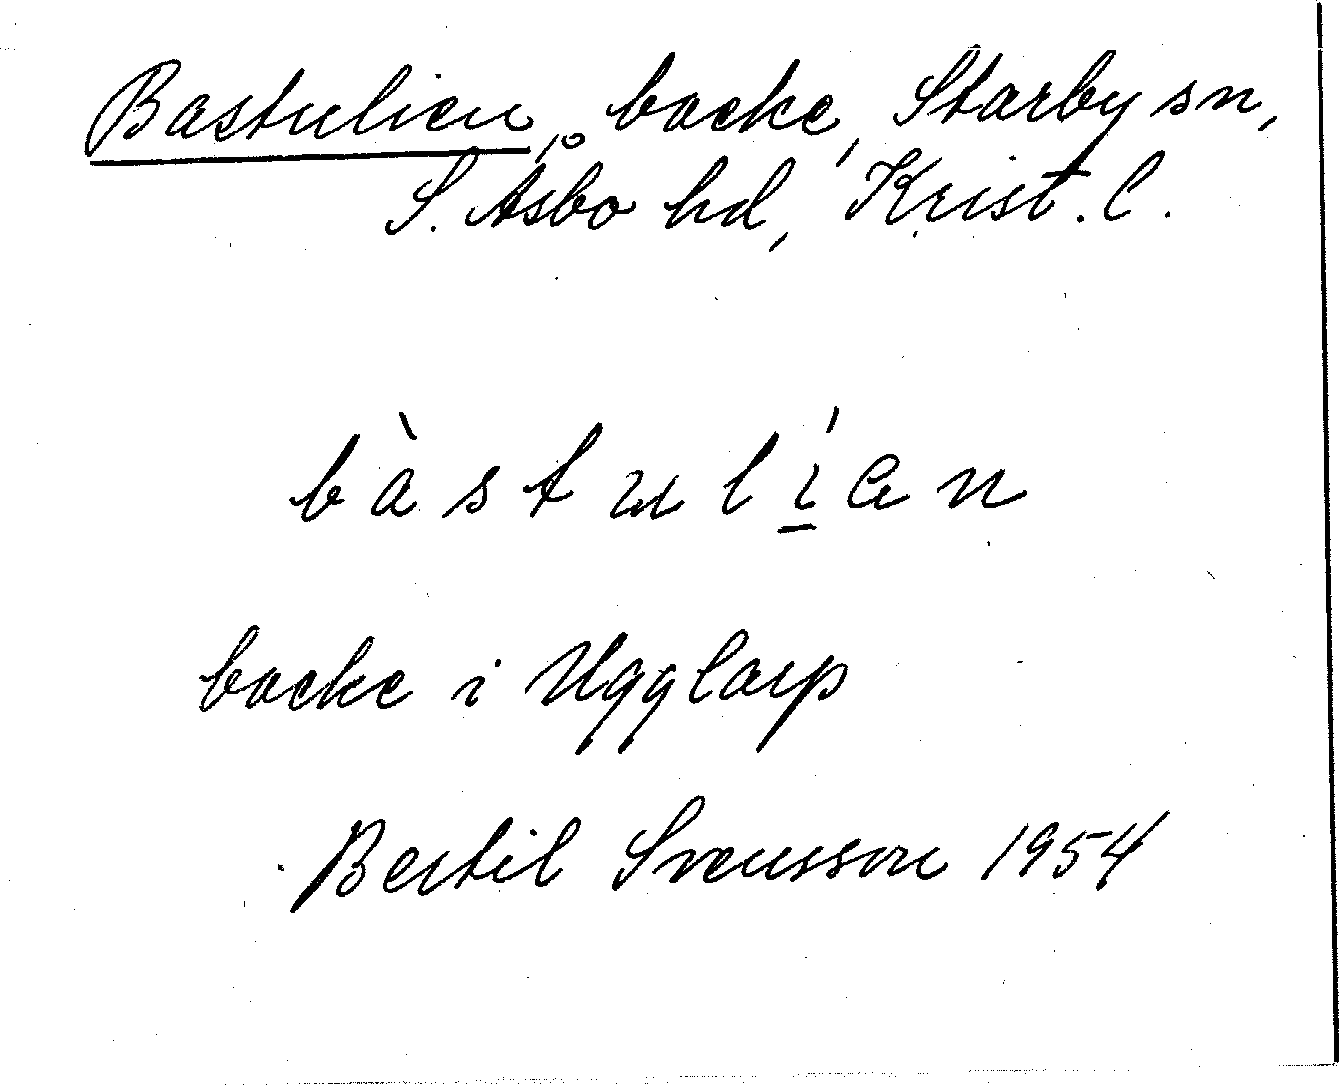 Bastulien, backe, Starby sn,
S. Åsbo hd, Krist. l.
bàstulían
backe i Ugglarp
Bertil Svensson 1954